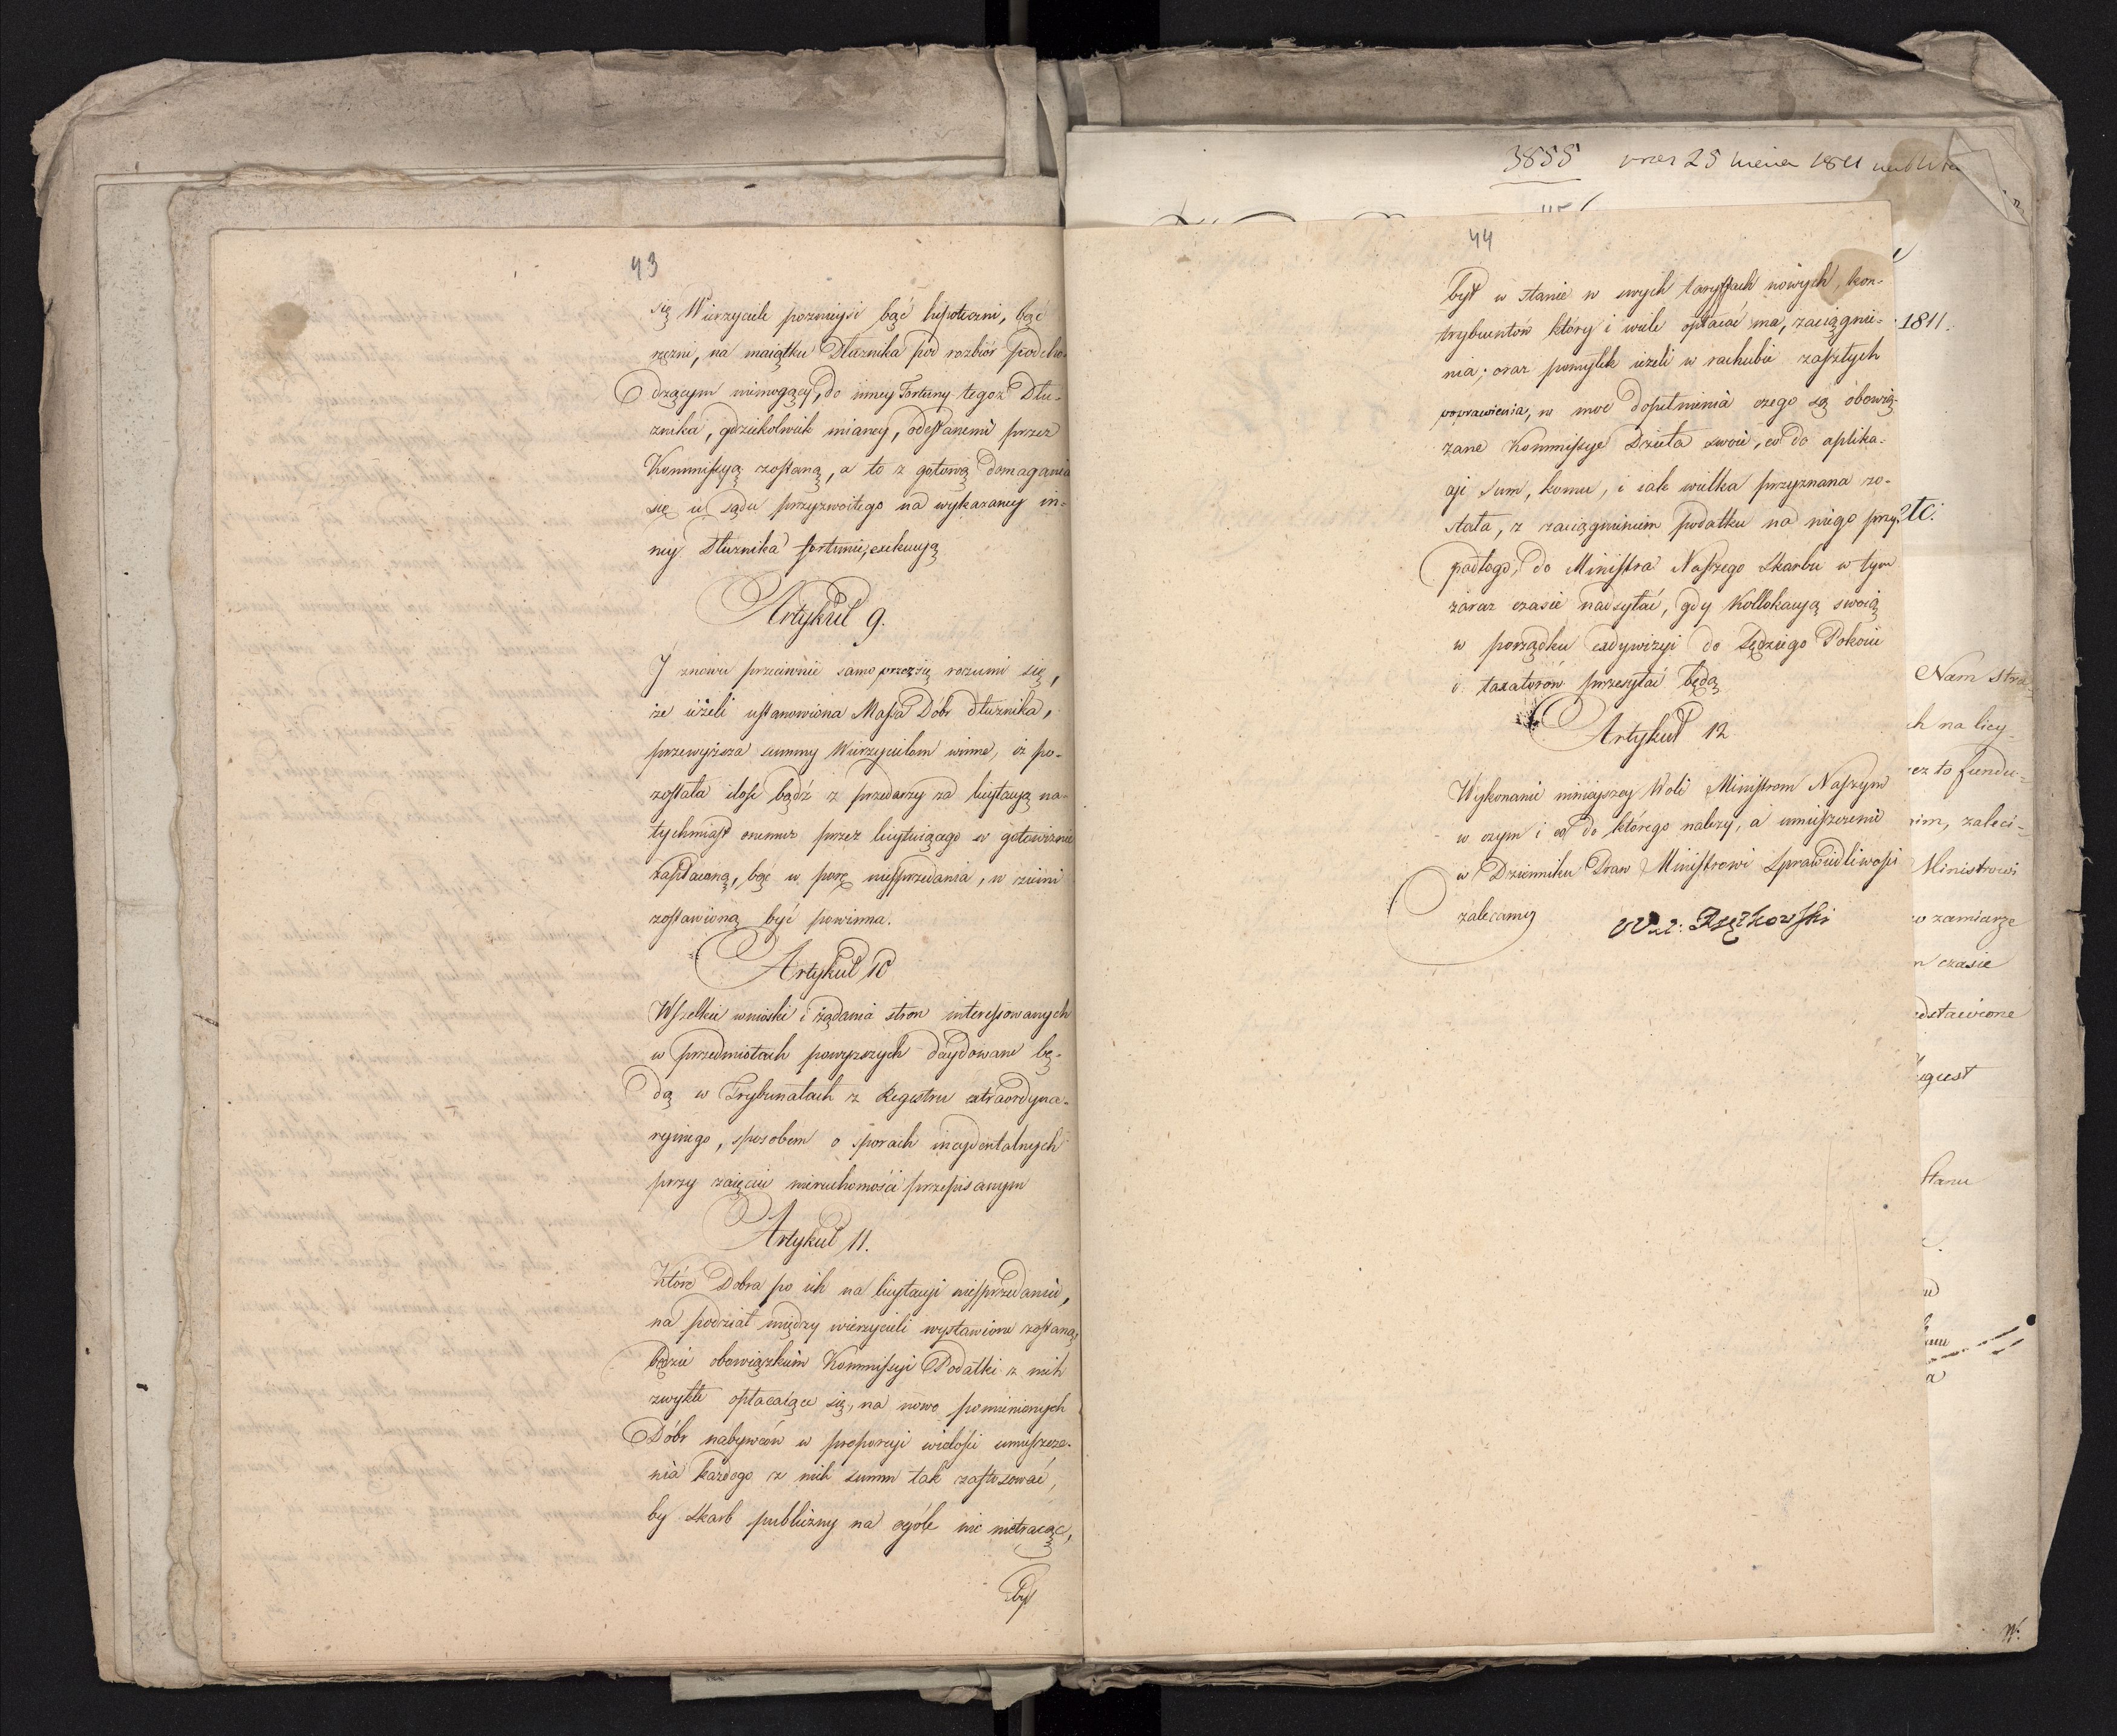 43
się Wierzyciele pozniejsi bąć hipoteczni, bąć
ręczni, na maiątku Dłużnika pod rozbiór podcho-
dzącym niemogący, do inney Fortuny tegoż Dłu-
żnika, gdziekolwiek mianey, odesłanemi przez
Kommissyą zostaną, a to z gotową domagania
się u sądu przyzwoitego na wykazaney in-
ney Dłużnika fortunie, exekucyą
Artykuł 9.
I znowu przeciwnie samo przezsię rozumi się,
że ieżeli ustanowiona Massa Dóbr dłużnika,
przewyższa summy Wierzycielom winne, iż po-
została ilość bądź z przedarzy za licytacyą na-
tychmiast onemuż przez licytuiącego w gotowiznie
zapłaconą, bąć w porę niesprzedania, w ziemi
zostawioną być powinna.
Artykuł 10
Wszelkie wnioski i żądania stron interessowanych
w przedmiotach powyższych decydowane bę-
dą w Trybunałach z Regestru extraordyna-
ryinego, sposobem o sporach incydentalnych
przy zaięciu nieruchomości przepisanym
Artykuł 11.
Które Dobra po ich na licytacyi niesprzedaniu,
na podział między wierzycieli wystawione zostaną,
będzie obowiązkiem Kommissyi Podatki z nich
zwykle opłacaiące się, na nowo pomienionych
Dóbr nabywców w proporcyi wielości umieszcze-
nia każdego z nich summ tak zastosować,
by Skarb publiczny na ogóle nic nietracąc,
był
44
był w stanie w swych taryffach nowych, kon-
trybuentów który i wiele opłacać ma, zaciągnie-
nia; oraz pomyłek ieżeli w rachubie zaszłych
poprawienia, w moc dopełnienia czego są obowią-
zane Kommissye Dzieła swoie, co do aplika-
cyi sum, komu, i iak wielka przyznana zo-
stała, z zaciągnieniem podatku na niego przy-
padłego, do Ministra Naszego Skarbu w tym
zaraz czasie nadsyłać, gdy Kollokacyą swoią
w porządku exdywizyi do Sędziego Pokoiu
i taxatorów przesyłać będą
Artykuł 12
Wykonanie ninieyszey Woli Ministrom Naszym
w czym i co do którego należy, a umieszczenie
w Dzienniku Praw Ministrowi Sprawiedliwości
zalecamy
3855
25
1811
1811.
etc.
Nam
ch na licy-
ez to fundu-
nim, zaleci-
Ministrowi
w zamiarze
m czasie
edstawione
ugust
Stanu